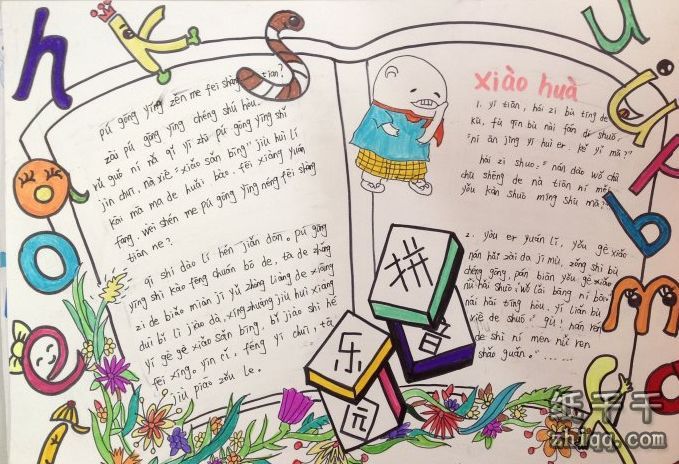 h k s u ü p b m o o e
pú gōng yīng zěn me fēi shàng tiān?
zài pú gōng yīng chéng shú hòu.
rú guǒ nǐ ná qǐ yī zhū pú gōng yīng shǐ
jìn chuī. nà xiē "xiǎo sǎn bīng" jiù huì lí
kāi mā ma de huái bào. fēi xiàng yuǎn
fāng. wèi shén me pú gōng yīng néng fēi shàng
tiān ne?
qí shí dào lǐ hěn jiǎn dān。pú gōng
yīng shì kào fēng chuán bō de, tā de zhǒng
zi de biǎo miàn jī yǔ zhòng liàng de xiāng
duì bǐ lì jiào dà, xíng zhuàng jiù huì xiàng
yí gè gè xiǎo sǎn bīng. bǐ jiào shì hé
fēi xíng. yīn cǐ, fēng yì chuī, tā
jiù piāo zǒu le.
xiào huà
1. yì tiān, hái zi bù tíng de
kū, fù qīn bù nài fán dì shuō:
"nǐ ān jìng yí huì er, kě yǐ mā?"
hái zi shuō: "nán dào wǒ chū
chū shēng de nà tiān nǐ méi
yǒu kàn shuō míng shū mā?"
2. yòu ér yuán lǐ, yǒu gè xiǎo
nán hái zài dā jī mù, zǒng shì bù
chéng gōng, páng biān yǒu gè xiǎo
nǚ hái shuō: "wǒ lái bāng nǐ ba"
nán hái tīng hòu, yì liǎn bù
xiè de shuō: nán rén
de shì nǐ men nǚ rén
shǎo guǎn。"……
拼
音
乐
园
纸千千
zhiqq.com